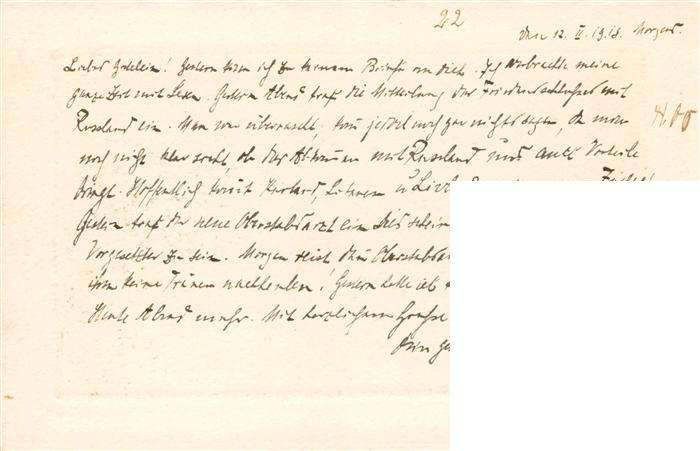 22
den 12. II. 1918. Morgens.
Liebes Gretelein! Gestern kam ich zu keinem Briefe an dich. Ich verbrachte meine
ganze Zeit mit Lesen. Gestern Abend traf die Mitteilung des Friedensschlusses mit
Russland ein. Man war überrascht, kann jedoch noch gar nichts sagen, da man
noch nicht klar sieht, ob das Abkommen mit Russland uns auch Vorteile
bringt. Hoffentlich Kurland, Litauen u.
Gestern traf der neue Oberstabsarzt ein
Vorgesetzter zu sein. Morgen reist dein
ihm keine Tränen nachweinen! Gestern hatte ich
Heute Abend mehr. Mit herzlichem Grusse
Dein